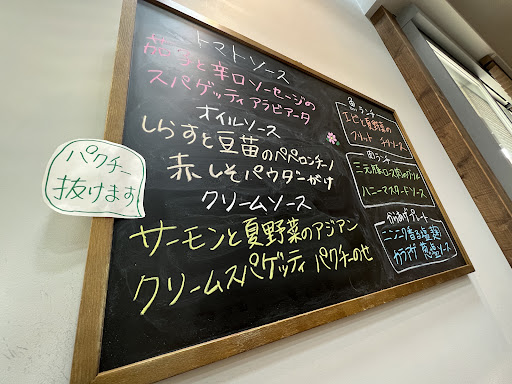 トマトソース
茄子と辛口ソーセージの
スパゲッティ アラビアータ
オイルソース
しらすと豆苗のペペロンチーノ
赤しそパウダーがけ
クリームソース
サーモンと夏野菜のアジアン
クリームスパゲッティ パクチーのせ
パクチー
抜けます
魚ランチ
エビと夏野菜の
フリット チリソース
肉ランチ
三元豚ロース
ハニーマスタードソース
からあげプレート
ニンニク香る塩麹
カラアゲ 葱塩ソース